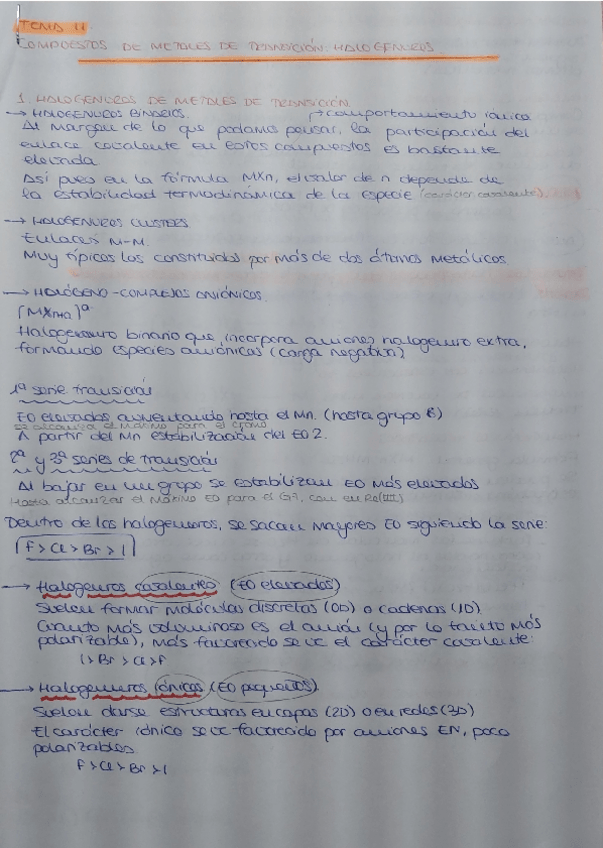 TEMA 11
COMPUESTOS DE METALES DE TRANSICIÓN: HALOGENUROS.
1. HALOGENUROS DE METALES DE TRANSICIÓN.
→ HALOGENUROS BINARIOS. → comportamiento iónico
Al margen de lo que podamos pensar, la participación del
enlace covalente en estos compuestos es bastante
elevada
Así pues en la fórmula MXn, el valor de n depende de
la estabilidad termodinámica de la especie (carácter covalente).
→ HALOGENUROS CLUSTERS.
Enlaces M-M.
Muy típicos los constituidos por más de dos átomos metálicos
→ HALÓGENO-COMPLEJOS ANIÓNICOS.
[MXn+a]a-
Halogenuro binario que incorpora aniones halogenuro extra,
formando especies aniónicas (carga negativa)
1ª serie transición
EO elevados aumentando hasta el Mn. (hasta grupo 6)
se alcanza el máximo para el cromo
A partir del Mn estabilización del EO 2.
2ª y 3ª series de transición
Al bajar en un grupo se estabilizan EO más elevados
Hasta alcanzar el máximo EO para el G7, con en Re(VII)
Dentro de los halogenuros, se sacan mayores EO siguiendo la serie:
F > Cl > Br > I
→ Halogenuros covalentes (EO elevados)
Suelen formar moléculas discretas (0D) o cadenas (1D)
Cuanto más voluminoso es el anión (y por lo tanto más
polarizable), más favorecido se ve el carácter covalente:
I > Br > Cl > F
→ Halogenuros iónicos (EO pequeños)
Suelen darse estructuras en capas (2D) o en redes (3D)
El carácter iónico se ve favorecido por aniones EN, poco
polarizables
F > Cl > Br > I